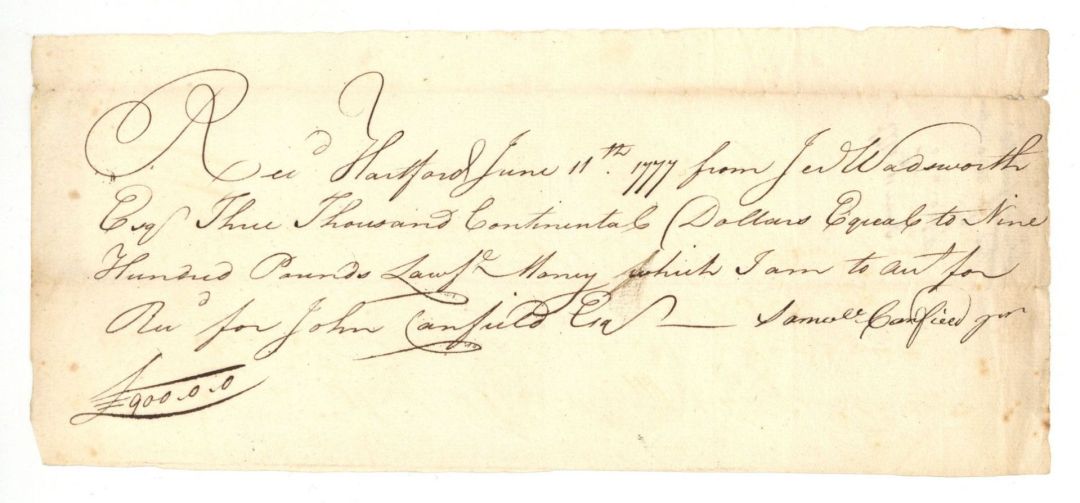 Rec'd Hartford June 11th. 1777 from Jer Wadsworth
Esq Three Thousand Continental Dollars Equal to Nine
Hundred Pounds Lawf'l Money which I am to acc't for
Rec'd for John Canfield Esq — Samuel Canfield jnr
£900.0.0